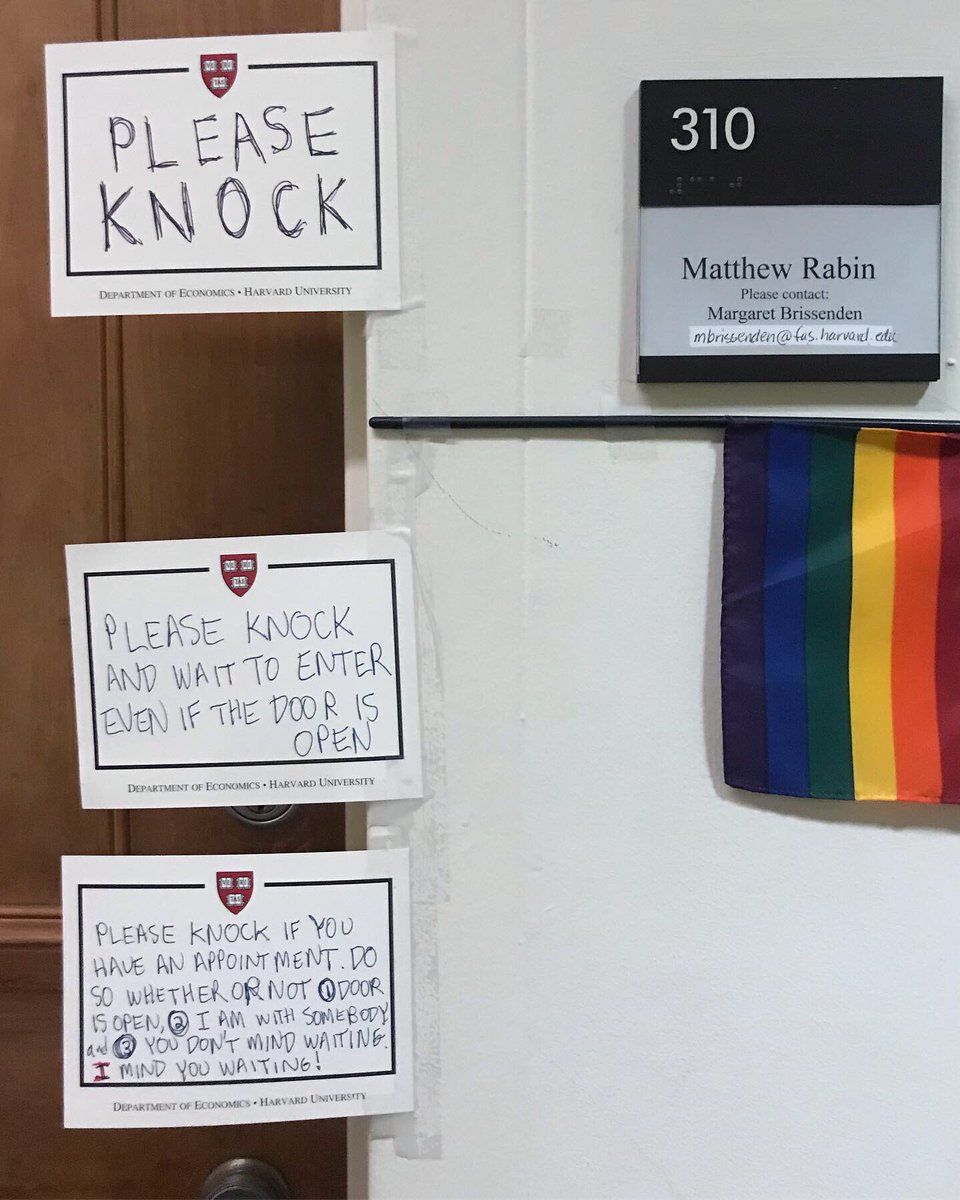 PLEASE
KNOCK
DEPARTMENT OF ECONOMICS • HARVARD UNIVERSITY
310
Matthew Rabin
Please contact:
Margaret Brissenden
mbrissenden@fas.harvard.edu
PLEASE KNOCK
AND WAIT TO ENTER
EVEN IF THE DOOR IS
OPEN
DEPARTMENT OF ECONOMICS • HARVARD UNIVERSITY
PLEASE KNOCK IF YOU
HAVE AN APPOINTMENT. DO
SO WHETHER OR NOT ① DOOR
IS OPEN, ② I AM WITH SOMEBODY
and ③ YOU DON'T MIND WAITING.
I MIND YOU WAITING!
DEPARTMENT OF ECONOMICS • HARVARD UNIVERSITY